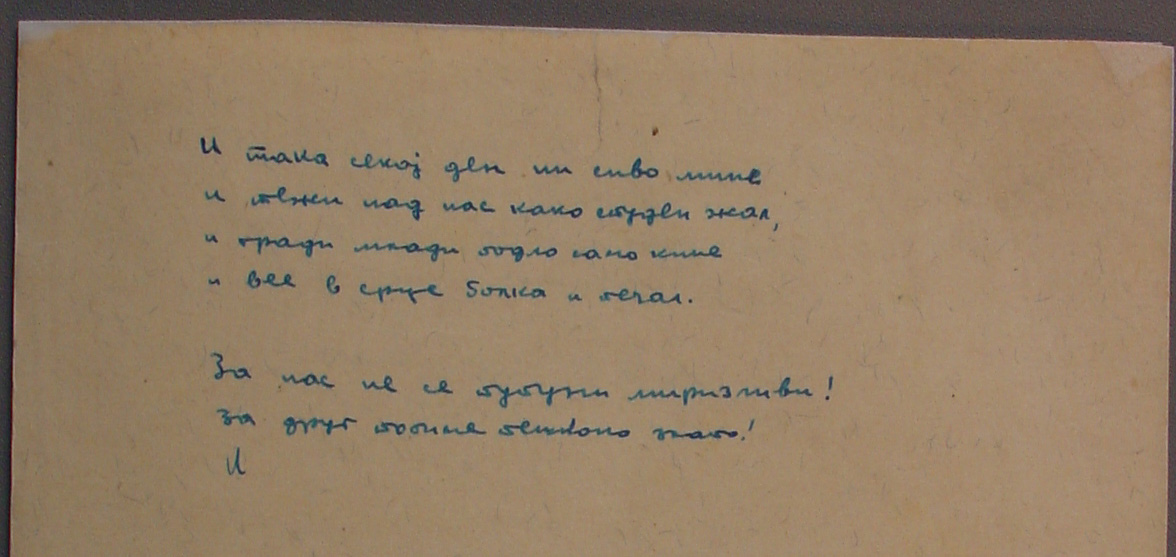 И така секој ден ни сиво мине
и тежи над нас како студен жал,
и гради млади подло само кине
и вее в срце болка и печал.
За нас не се тутуни миризливи!
За друг тешкото злато!
И